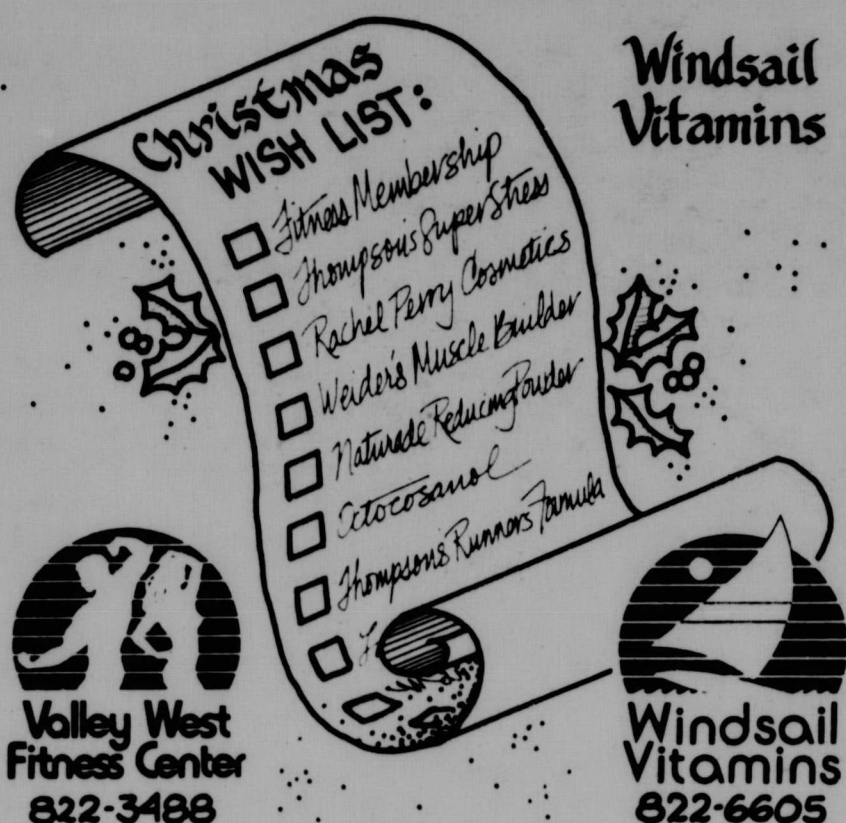 Windsail
Vitamins
Christmas
WISH LIST:
Fitness Membership
Thompson's SuperStress
Rachel Perry Cosmetics
Weider's Muscle Builder
Naturade Reducing Powder
Octocosanol
Thompsons Runners Formula
Valley West
Fitness Center
822-3488
Windsail
Vitamins
822-6605